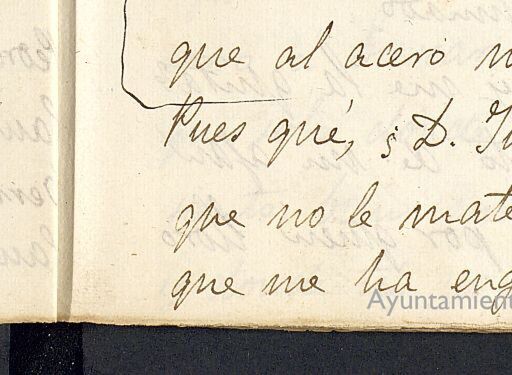 que al acero
Pues qué, ¿D.
que no le mate
que me ha eng
Ayuntamient